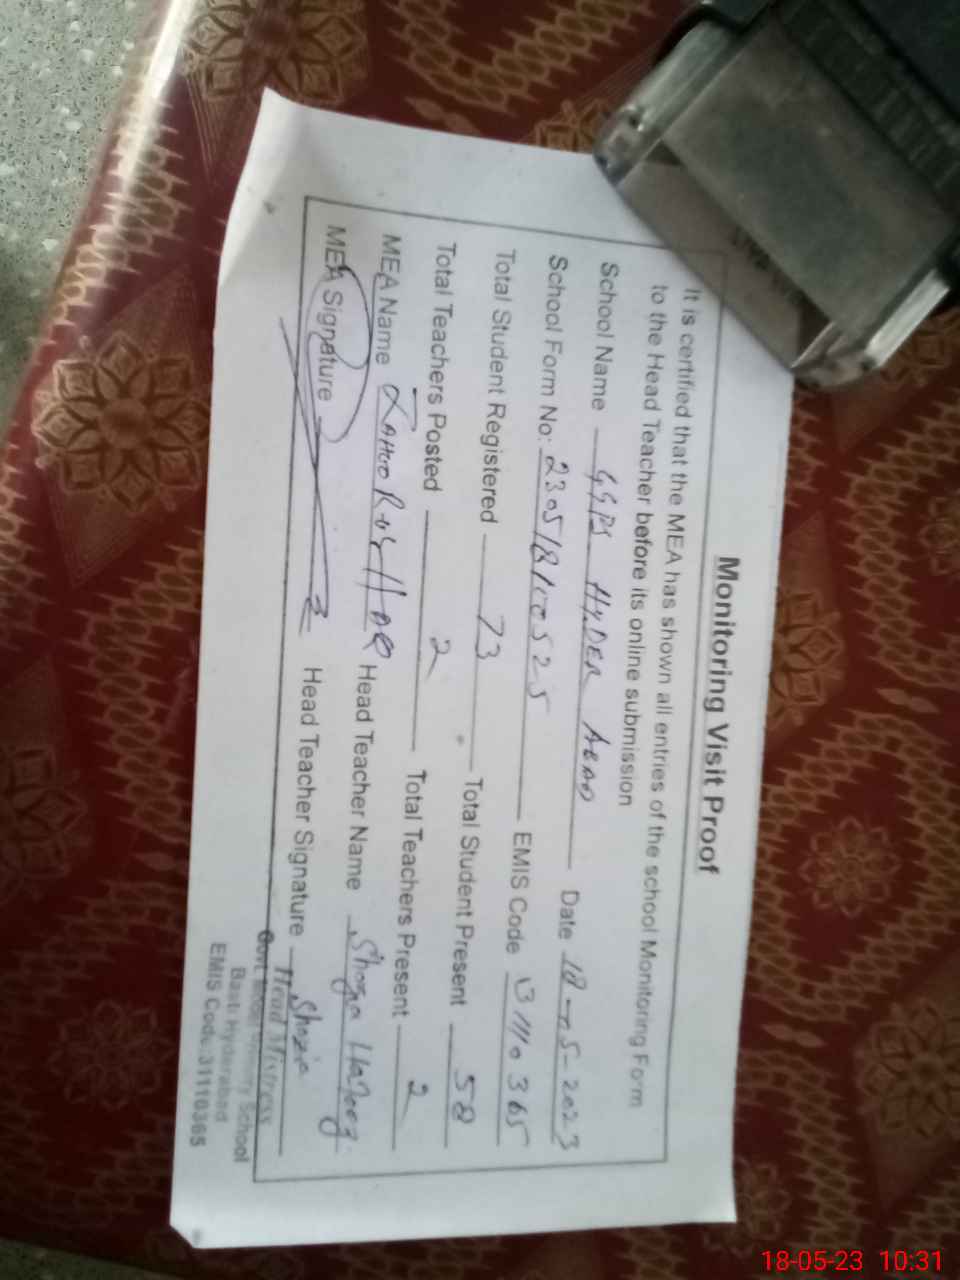 Monitoring Visit Proof
It is certified that the MEA has shown all entries of the school Monitoring Form
to the Head Teacher before its online submission
School Name GGPS HYDER ABAD Date 18-05-2023
School Form No: 230518110525 EMIS Code 31110365
Total Student Registered 73 Total Student Present 58
Total Teachers Posted 2 Total Teachers Present 2
MEA Name Head Teacher Name Shazia
MEA Signature Head Teacher Signature Shazia
Head Mistress
Govt. Primary School
Basti Hyderabad
EMIS Code:31110365
18-05-23 10:31